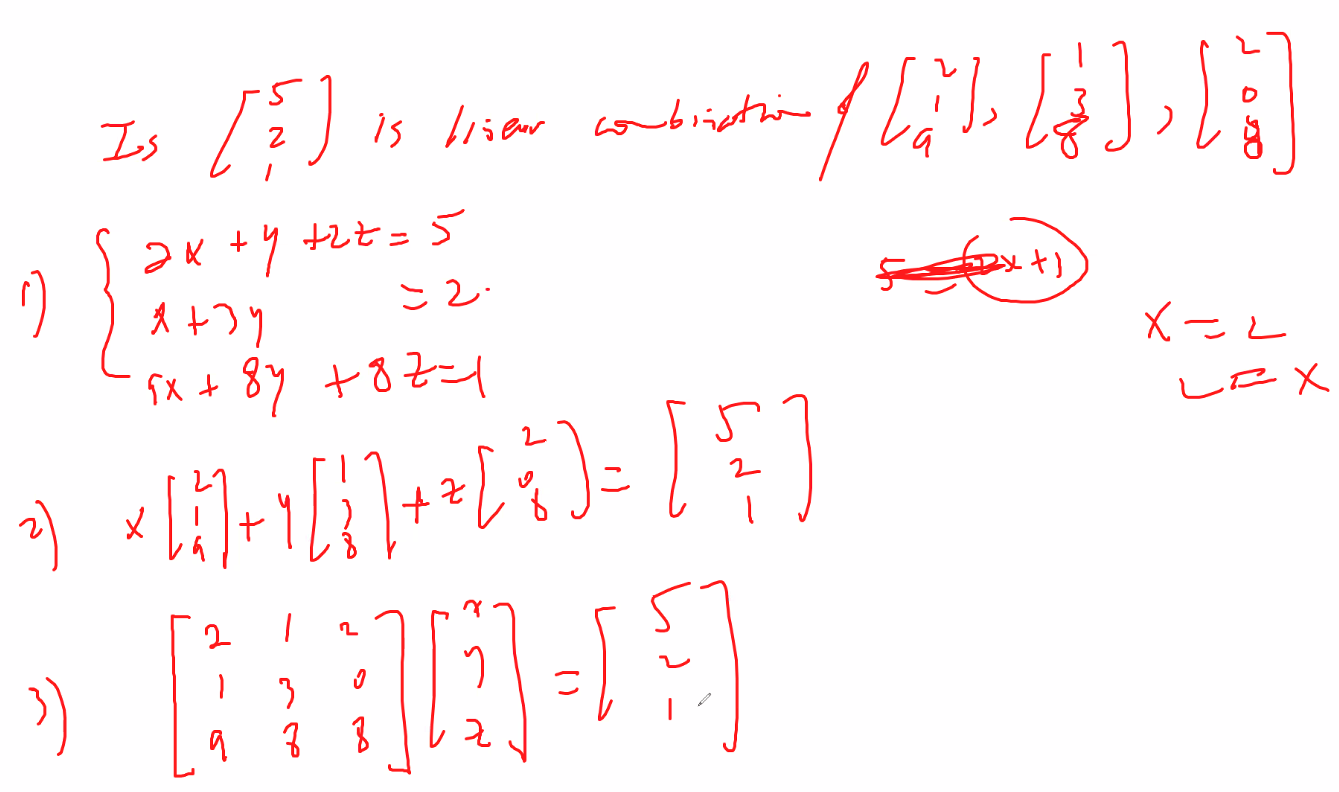 Is [5 2 1] is linear combination of [2 1 9], [1 3 8], [2 0 8]
1) { 2x + y + 2z = 5
x + 3y = 2.
9x + 8y + 8z = 1
x = 2
2 = x
2) x [2 1 9] + y [1 3 8] + z [2 0 8] = [5 2 1]
3) [2 1 2
1 3 0
9 8 8] [x y z] = [5 2 1]